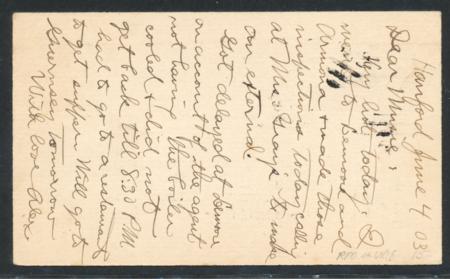 Hanford June 4 03
Dear Minnie,
Very hot today. I
went to Lemoore and
Armona & made those
inspections today calling
at Miss Gray's to make
our external.
Got delayed at Lemoore
on account of the agent
not having the boiler
cooled & did not
get back till 8:30 P.M.
had to go to a restaurant
to get supper. Will go to
Guernsey tomorrow
With love Alex